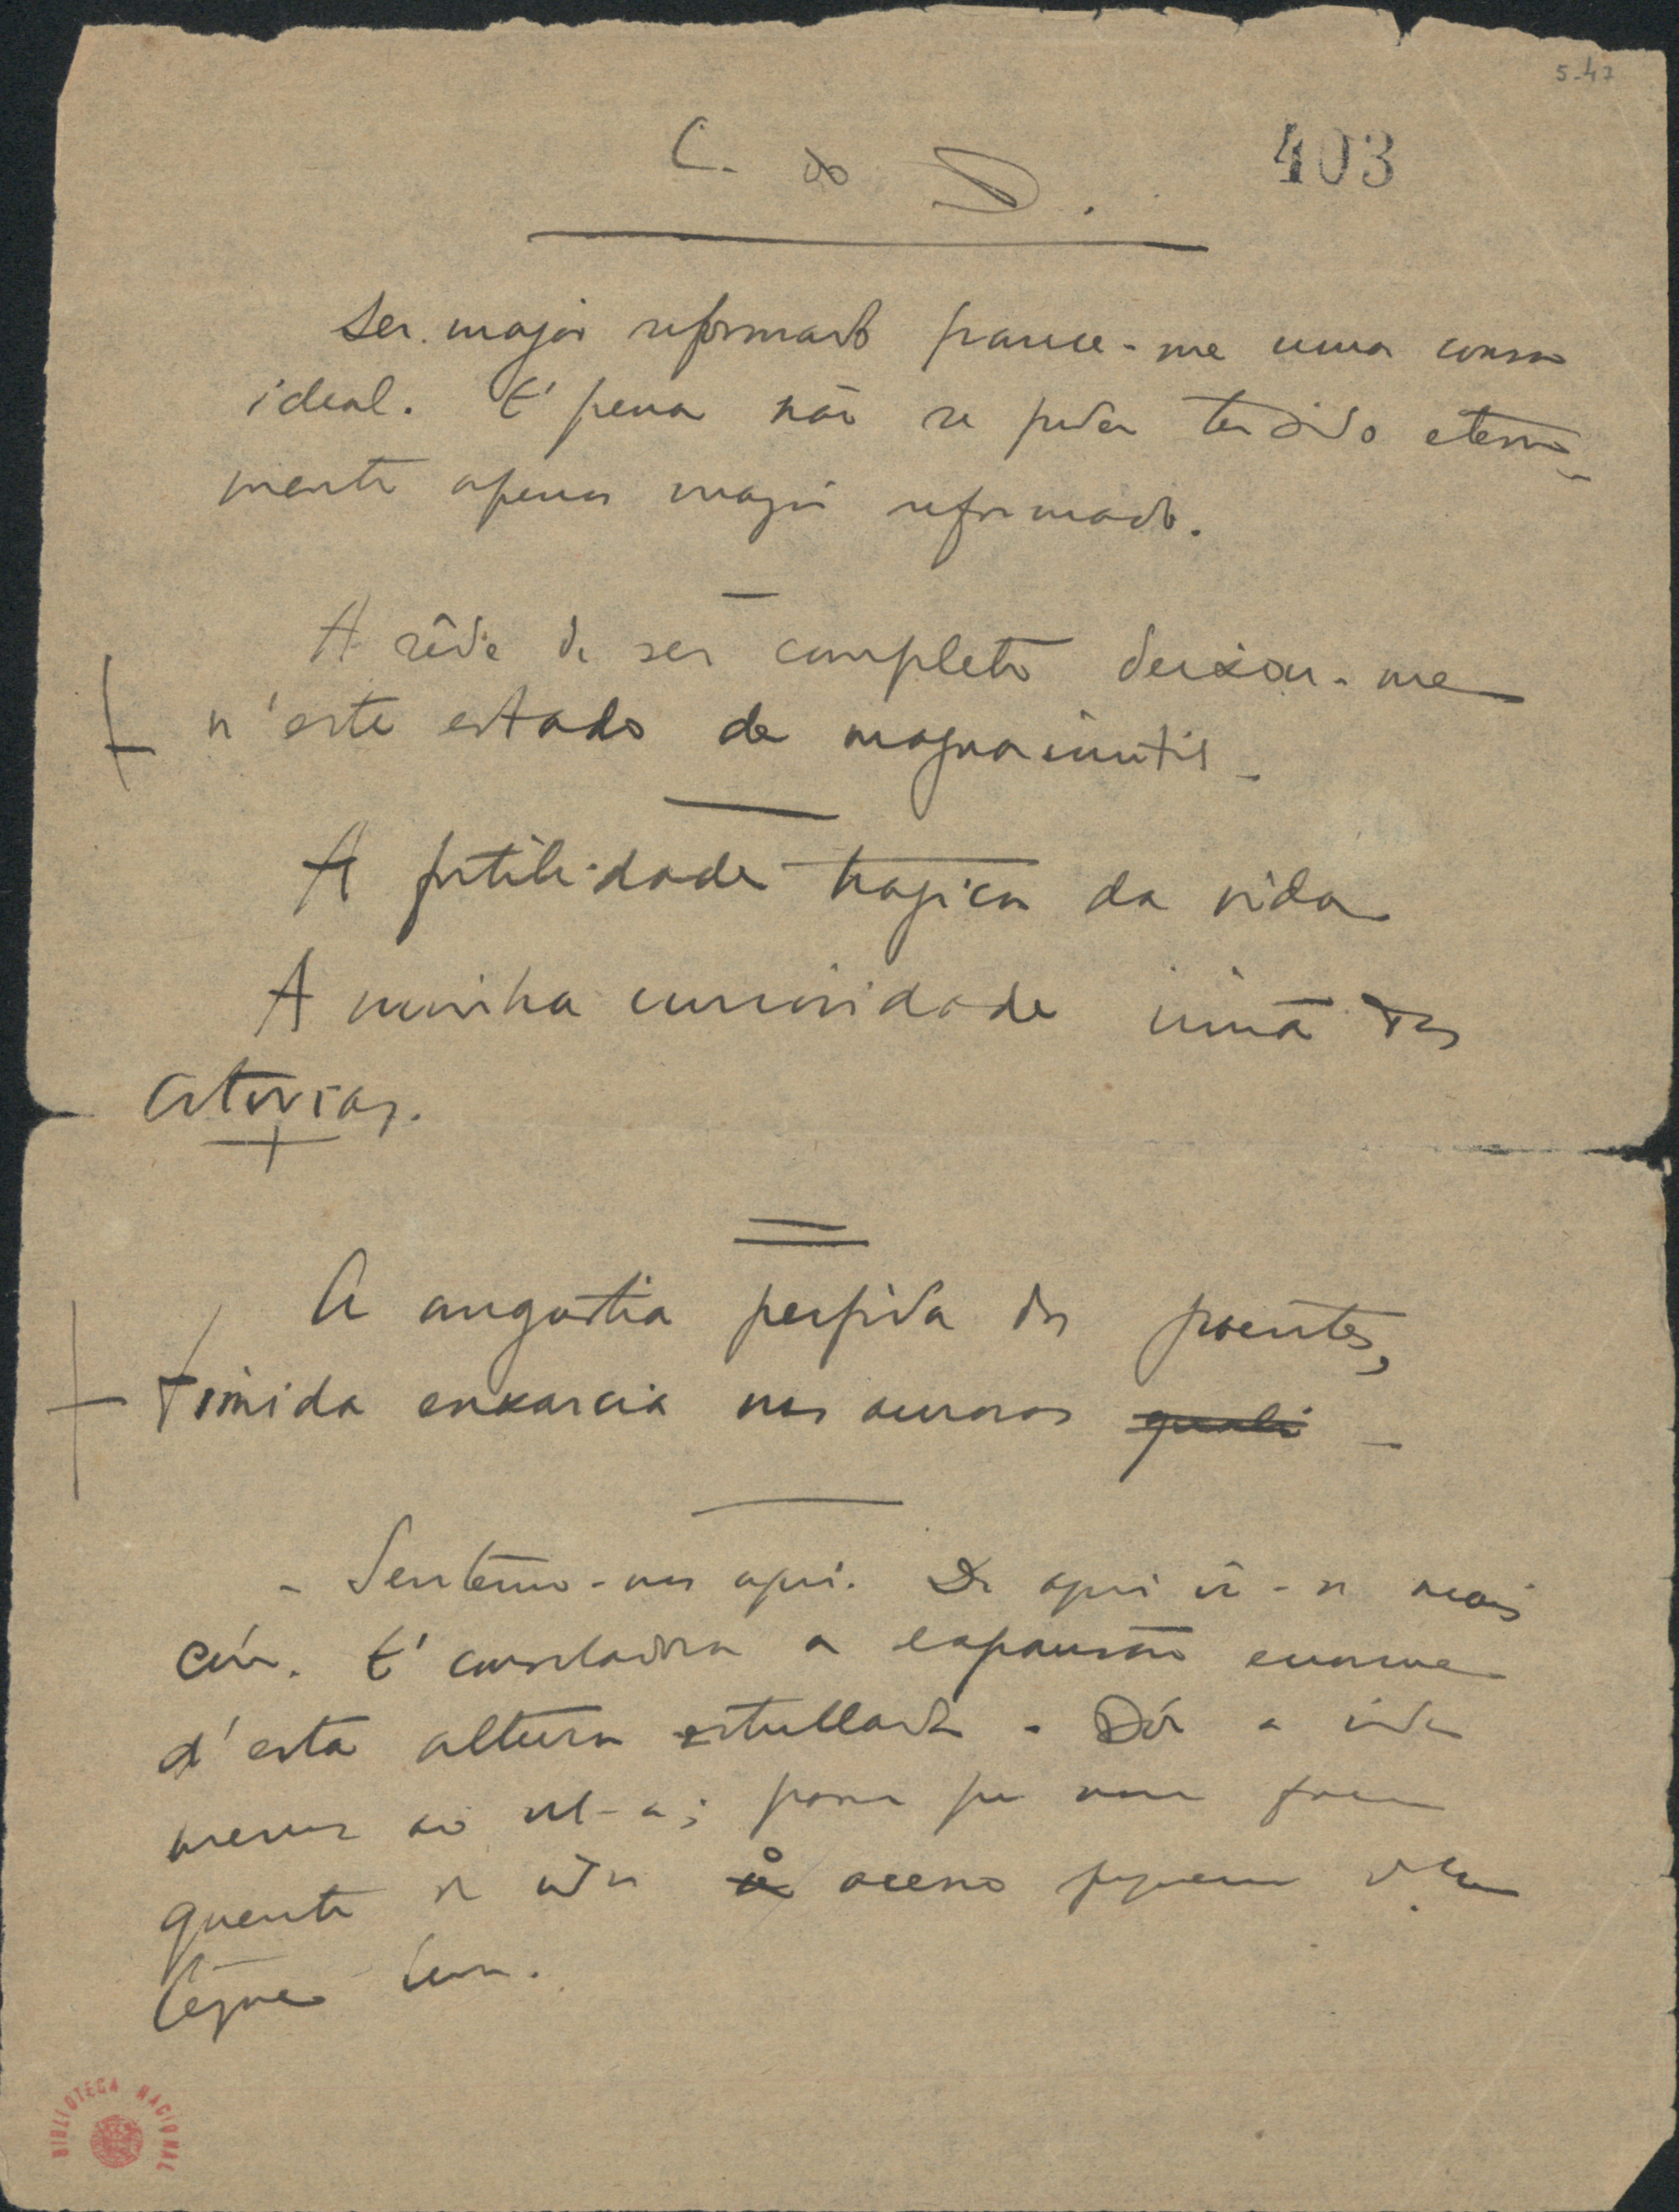 5-47
L. do D.
403
Ser major reformado parece-me uma cousa
ideal. É pena não se poder ter sido eterna-
mente apenas major reformado.
A sêde de ser completo deixou-me
n'este estado de magua inutil.
A futilidade tragica da vida
A minha curiosidade irmã das
cotovias.
A angustia perfida dos poentes,
timida enxarcia nas auroras
- Sentemo-nos aqui. De aqui vê-se mais
céu. É consoladora a expansão enorme
d'esta altura estrellada. Dóe a vida
menos ao vel-a; passa por nossa face
quente de vida o aceno pequeno d'um
leque leve.
BIBLIOTECA NACIONAL